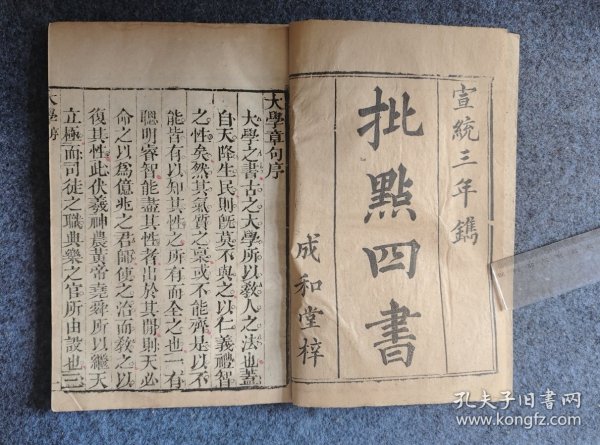 宣統三年鐫
批點四書
成和堂梓
大學章句序
大學之書古之大學所以敎人之法也蓋
自天降生民則旣莫不與之以仁義禮智
之性矣然其氣質之稟或不能齊是以不
能皆有以知其性之所有而全之也一有
聰明睿智能盡其性者出於其閒則天必
命之以爲億兆之君師使之治而敎之以
復其性此伏羲神農黃帝堯舜所以繼天
立極而司徒之職典樂之官所由設也三
大學 序
孔夫子旧书网
www.kongfz.com